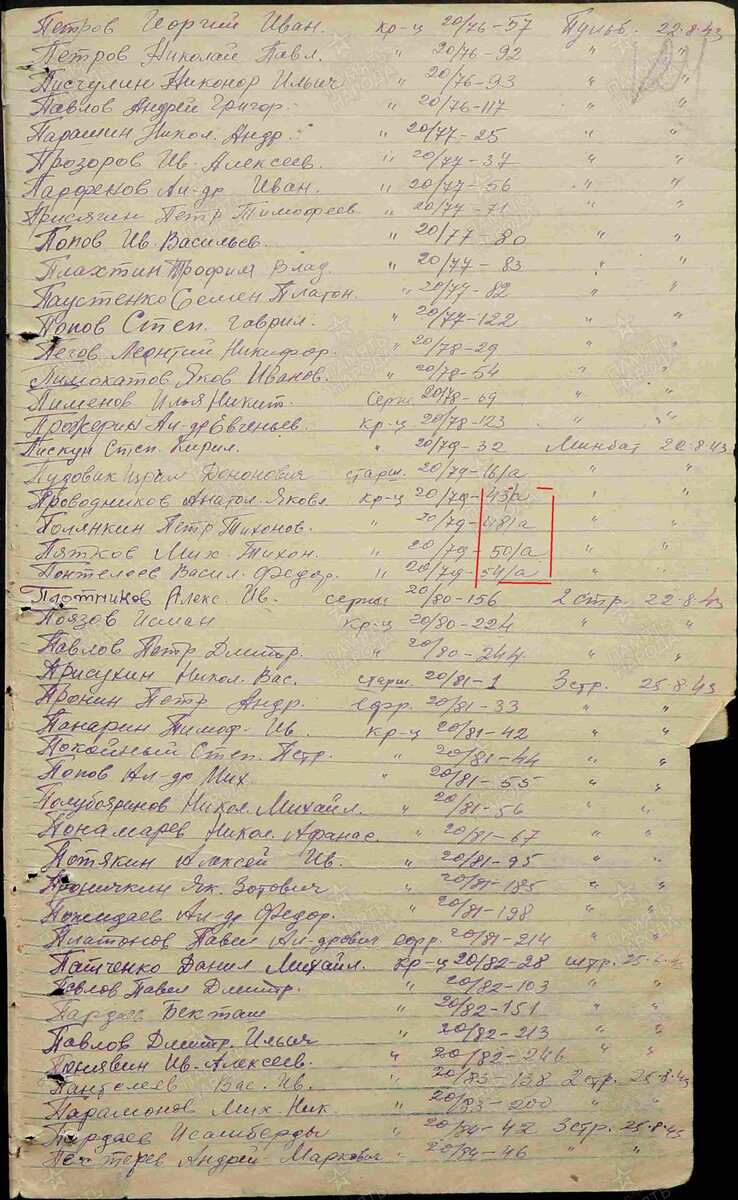 Петров Георгий Иван. кр-ц 20/76-57 Пульб. 22.8.43
Петров Николай Павл. " 20/76-92 " "
Писчулин Никонор Ильич " 20/76-93 " "
Павлов Андрей Григор. " 20/76-117 " "
Парашин Никол. Андр. " 20/77-25 " "
Прозоров Ив. Алексеев. " 20/77-37 " "
Парфенов Ал-др Иван. " 20/77-56 " "
Присягин Петр Тимофеев. " 20/77-71 " "
Попов Ив. Васильев. " 20/77-80 " "
Плахтин Трофим Влад. " 20/77-83 " "
Паустенко Семен Платон. " 20/77-82 " "
Попов Степ. Гаврил. " 20/77-122 " "
Пегов Леонтий Никифор. " 20/78-29 " "
Пимокатов Яков Иванов. " 20/78-54 " "
Пименов Илья Никит. Серж 20/78-69 " "
Прожерин Ал-др Евгеньев. кр-ц 20/78-123 " "
Пискун Степ. Кирил. " 20/79-32 Минбат 22.8.43
Пудовик старш. 20/79-16/а " "
Проводников Анатол. Яковл. кр-ц 20/79-43/а " "
Полянкин Петр Тихонов. " 20/79-48/а " "
Пятков Мих. Тихон. " 20/79-50/а " "
Пантелеев Васил. Федор. " 20/79-54/а " "
Плотников Алекс. Ив. серж. 20/80-156 2 стр. 22.8.43
Поязов Исман кр-ц 20/80-224 " "
Павлов Петр Дмитр. " 20/80-244 " "
Присухин Никол. Вас. старш. 20/81-1 3 стр. 25.8.43
Пронин Петр Андр. ефр. 20/81-33 " "
Панарин Тимоф. Ив. кр-ц 20/81-42 " "
Покойный Степ. Петр. " 20/81-44 " "
Попов Ал-др Мих. " 20/81-55 " "
Полубояринов Никол. Михайл. " 20/81-56 " "
Понамарев Никол. Афанас. " 20/81-67 " "
Потякин Алексей Ив. " 20/81-95 " "
Проничкин Як. Зотович " 20/81-185 " "
Пожидаев Ал-др Федор. " 20/81-198 " "
Платонов Павел Ал-дрович ефр. 20/81-214 " "
Патченко Данил Михайл. кр-ц 20/82-28 штр.
Павлов Павел Дмитр. " 20/82-103 " "
Пардаев Бекташ " 20/82-151 " "
Павлов Дмитр. Ильич " 20/82-213 " "
Ив. Алексеев. " 20/82-246 " "
Пантелеев Вас. Ив. " 20/83-138 2 стр. 25.8.43
Парамонов Мих. Ник. " 20/83-200 " "
Пардаев Исамберды " 20/84-42 3 стр. 25.8.43
Андрей Маркович " 20/84-46 " "